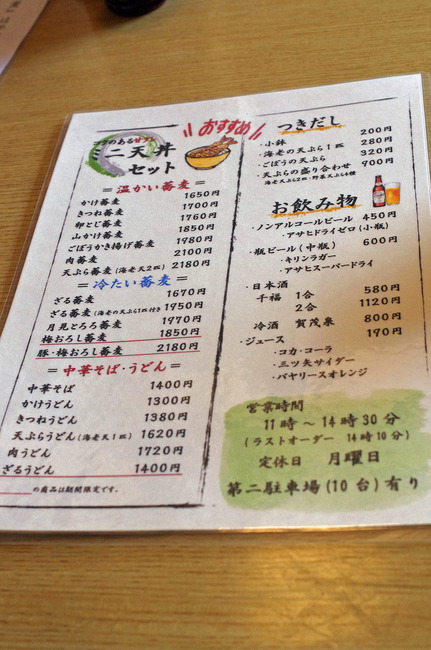 おすすめ
コクのあるサクサク
ミニ天丼
セット
＝温かい蕎麦＝
かけ蕎麦 1650円
きつね蕎麦 1700円
卵とじ蕎麦 1760円
山かけ蕎麦 1850円
ごぼうかき揚げ蕎麦 1780円
肉蕎麦 2100円
天ぷら蕎麦(海老天2匹) 2180円
＝冷たい蕎麦＝
ざる蕎麦 1670円
ざる蕎麦(海老の天ぷら1匹付き) 1950円
月見とろろ蕎麦 1970円
梅おろし蕎麦 1850円
豚・梅おろし蕎麦 2180円
＝中華そば・うどん＝
中華そば 1400円
かけうどん 1300円
きつねうどん 1380円
天ぷらうどん(海老天1匹) 1620円
肉うどん 1720円
ざるうどん 1400円
の商品は期間限定です。
つきだし
・小鉢 200円
・海老の天ぷら1匹 280円
・ごぼうの天ぷら 320円
・天ぷらの盛り合わせ 700円
海老天ぷら2匹・野菜天ぷら4種
お飲み物
・ノンアルコールビール 450円
アサヒドライゼロ(小瓶)
・瓶ビール(中瓶) 600円
・キリンラガー
・アサヒスーパードライ
・日本酒
千福 1合 580円
2合 1120円
冷酒 賀茂泉 800円
・ジュース 190円
・コカ・コーラ
・三ツ矢サイダー
・バヤリースオレンジ
営業時間
11時〜14時30分
(ラストオーダー 14時10分)
定休日 月曜日
第二駐車場(10台)有り